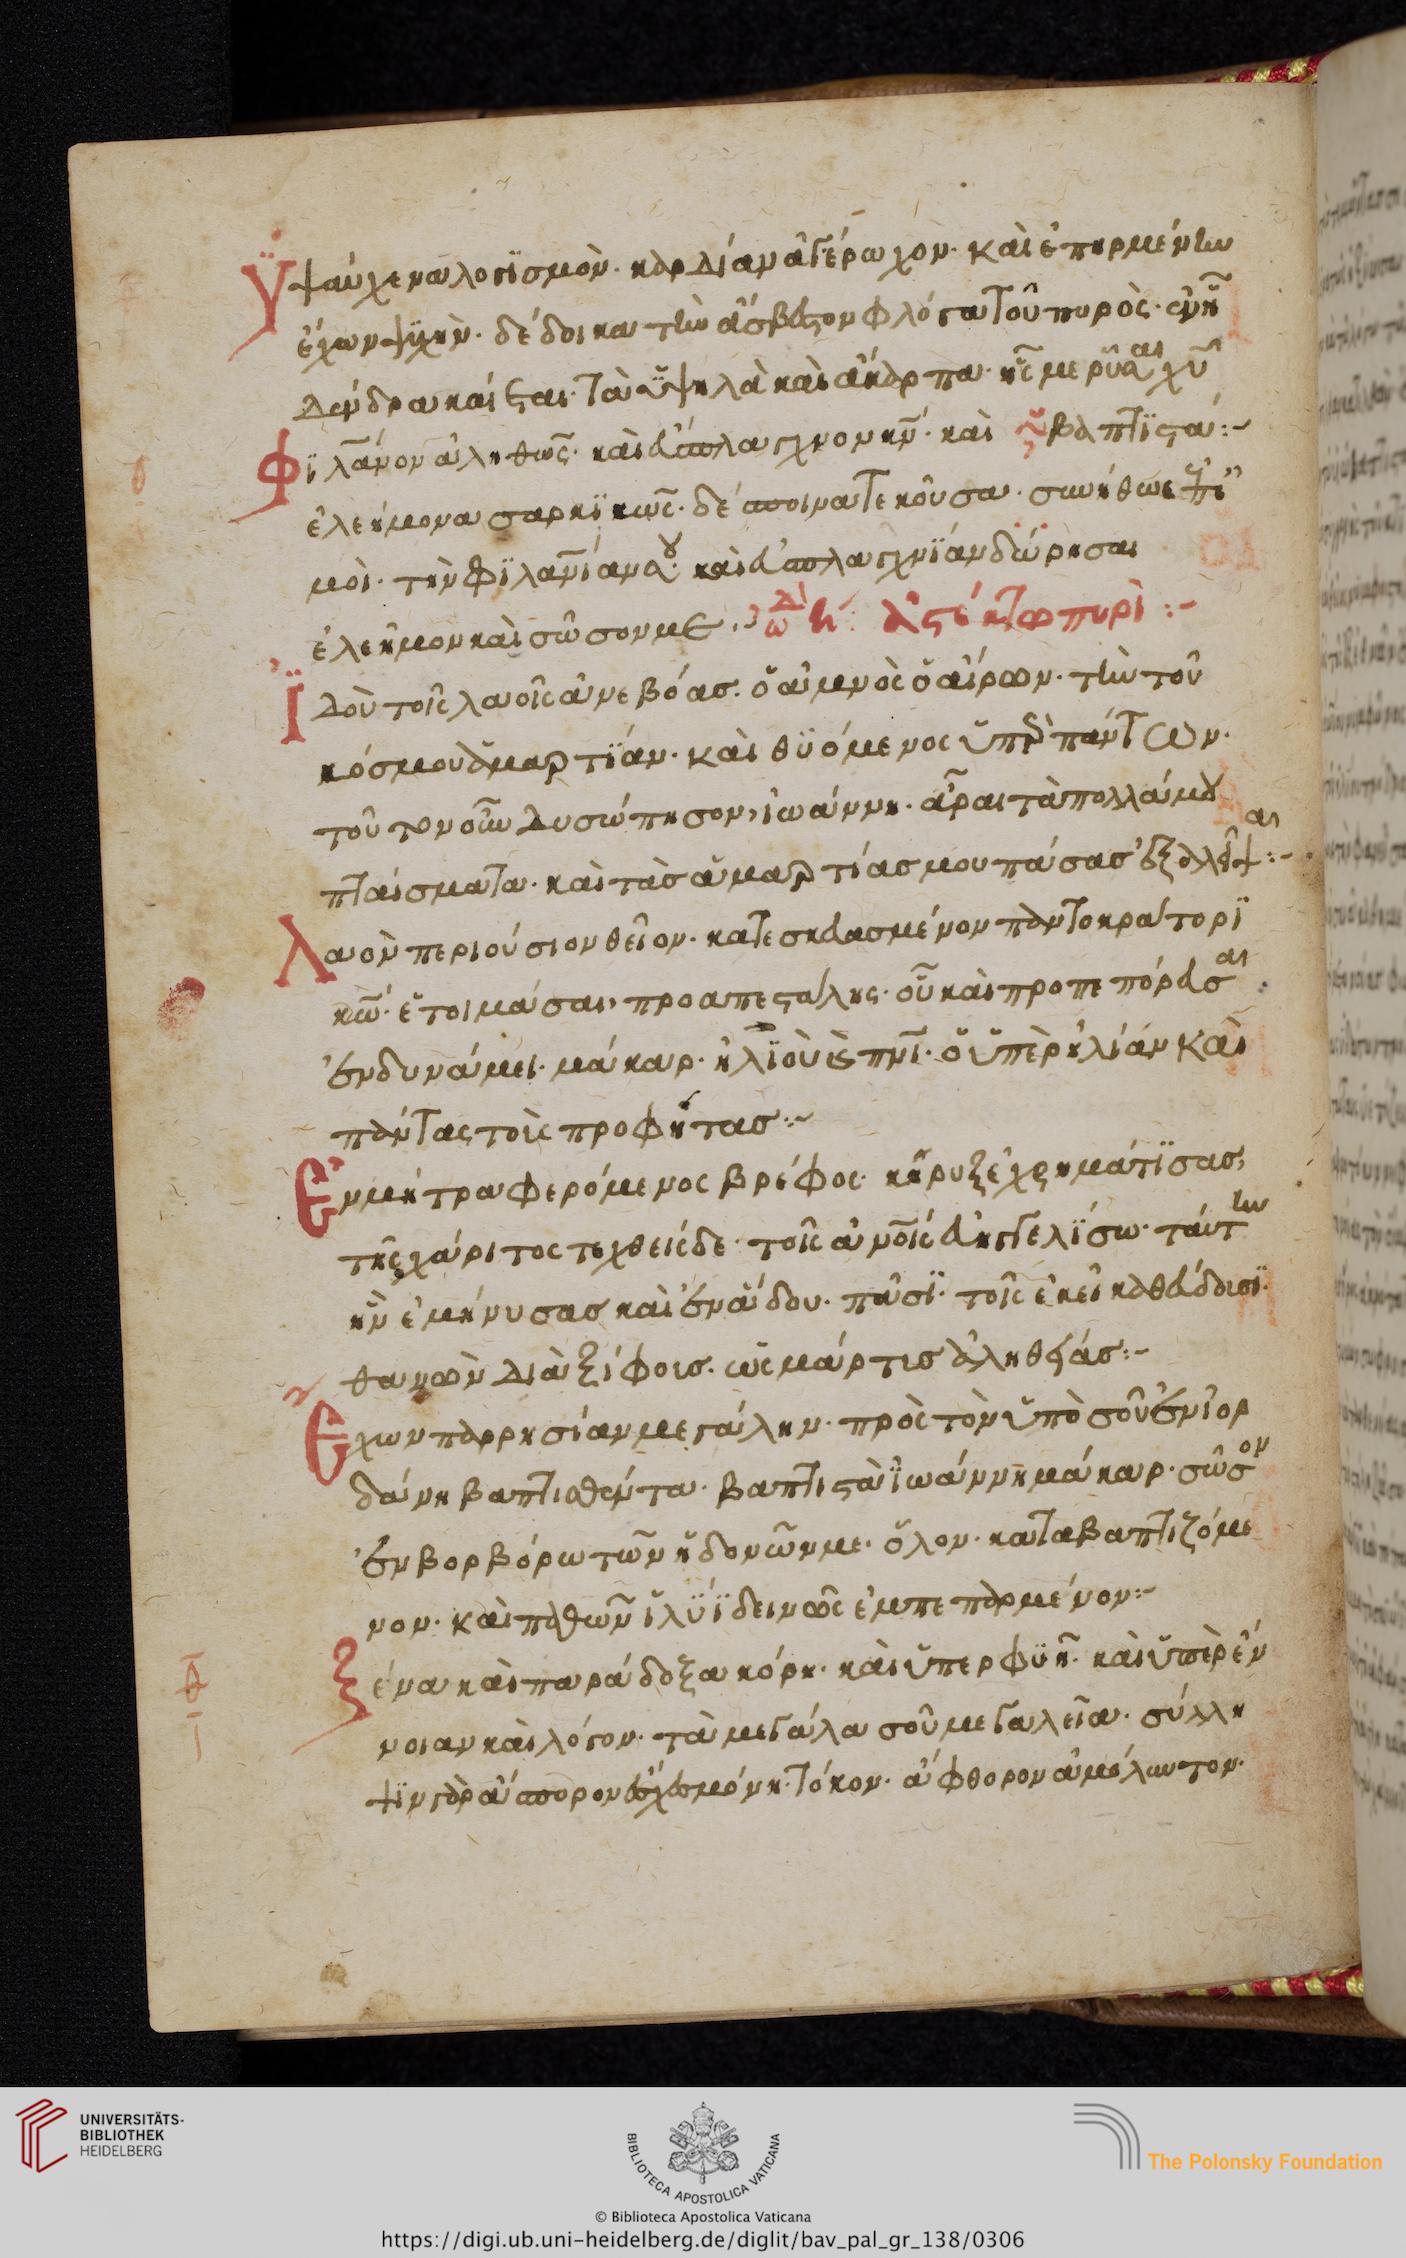 Ὑψαύχενα λογϊσμὸν· καρδίαν ἀγέρωχον· καὶ ἐπηρμένην
ἔχων ψϋχὴν· δέδοικα τὴν ἄσβεστον φλόγα τοῦ πυρὸς· ἐν ᾗ
δένδρα καίεται τὰ ὑψηλὰ καὶ ἄκαρπα· ἧς με ῥῦσαι χῦ
Φϊλᾶνον ἀληθῶς· καὶ εὔσπλαγχνον κν· καὶ βαπτϊστὰ:~
ἐλεήμονα σαρκϊκῶς· δέσποινα τεκοῦσα· συνήθως ἐπ
μοὶ· τὴν φϊλανίαν σου· καὶ εὐσπλαγχνϊάν δώρησαι
ἐλεῆμον καὶ σῶσον με ὠδ η ἀστέκτῳ πυρὶ:~
Ϊδοὺ τοῖς λαοῖς ἀνεβόας· ὁ ἀμνὸς ὁ αἴρων· τὴν τοῦ
κόσμου ἁμαρτϊάν· καὶ θϋόμενος ὑπὲρ πάντων·
τοῦτον οὖν δυσώπησον, ἰωάννη· ἆραι τὰ πολλά μου
πταίσματα· καὶ τὰς ἁμαρτίας μου πάσας ἐξαλεῖψαι:~
Λαὸν περιούσιον θεῖον· κατεσκευασμένον παντοκράτορϊ
κω· ἑτοιμάσαι, προαπεστάλης· οὗ καὶ προπεπόρευσαι
ἐν δυνάμει· μάκαρ· ἠλϊοὺ ἐν πνι· ὁ ὑπὲρ ἠλίαν καὶ
πάντας τοὺς προφήτας:~
Ἐν μήτρα φερόμενος βρέφος· κῆρυξ ἐχρημάτϊσας,
τῆς χάριτος τεχθεὶς δε· τοῖς ἀνοις εὐηγγελϊσω· ταύτην
ἣν ἐμήνυσας καὶ ἐν ἅδου· πᾶσϊ· τοῖς ἐκεῖ καθεύδουσϊ·
θανὼν διὰ ξίφους· ὡς μάρτυς ἀληθείας:~
Ἔχων παρρησίαν μεγάλην· πρὸς τὸν ὑπὸ σοῦ ἐν ἰορ
δάνη βαπτισθέντα· βαπτιστὰ ϊωάννη μάκαρ· σῶσον
ἐν βορβόρω τῶν ἡδονῶν με· ὅλον· καταβαπτιζόμε
νον· καὶ παθῶν ἰλϋϊ δεινῶς ἐμπεπαρμένον:~
Ξένα καὶ παράδοξα κόρη· καὶ ὑπερφϋῆ· καὶ ὑπὲρ ἔν
νοιαν καὶ λόγον· τὰ μεγάλα σοῦ μεγαλεῖα· σύλλη
ψϊν γὰρ ἄσπορον ἔσχες μόνη· τόκον· ἄφθορον ἀμόλυντον·
UNIVERSITÄTS-
BIBLIOTHEK
HEIDELBERG
BIBLIOTECA APOSTOLICA VATICANA
The Polonsky Foundation
© Biblioteca Apostolica Vaticana
https://digi.ub.uni-heidelberg.de/diglit/bav_pal_gr_138/0306